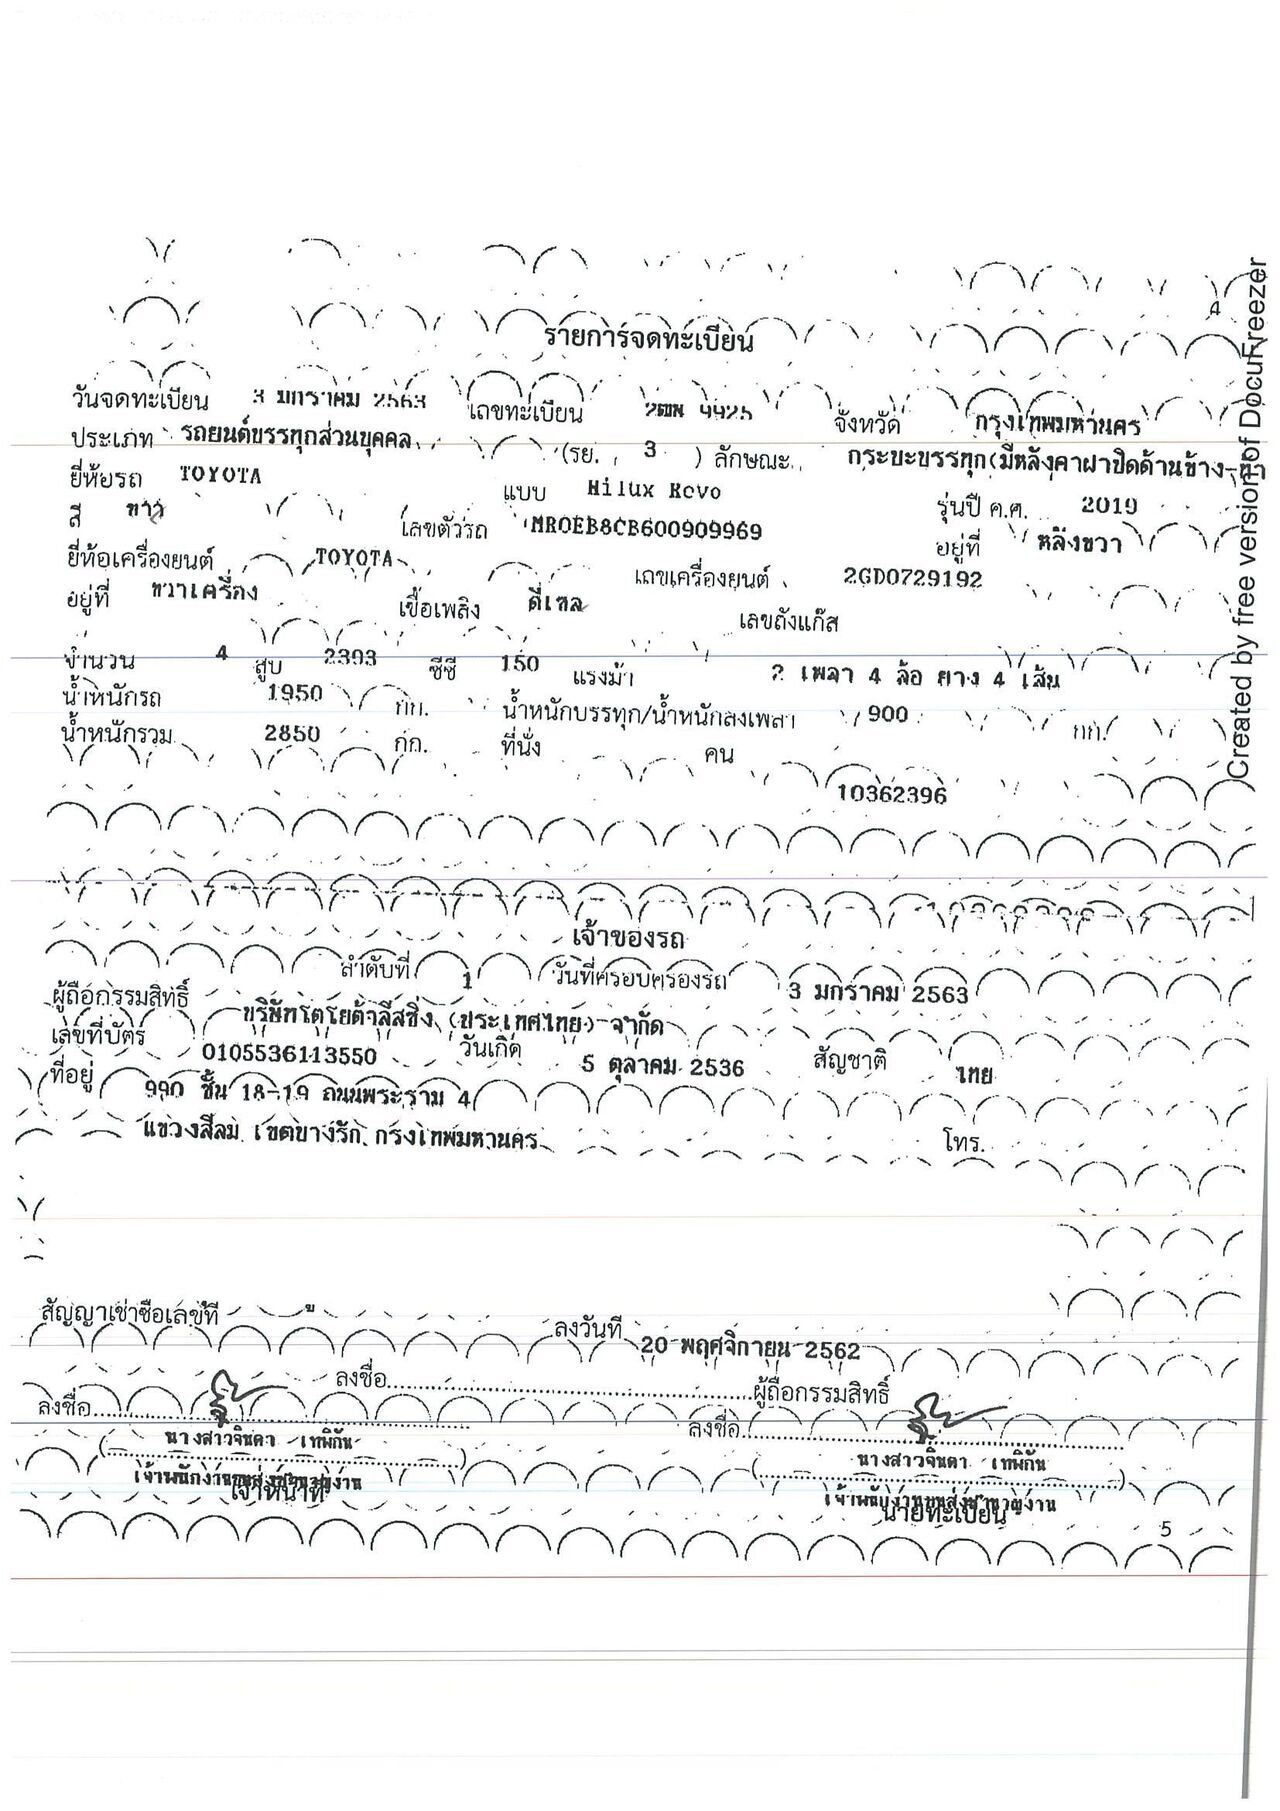 4
รายการจดทะเบียน
วันจดทะเบียน 3 มกราคม 2563 เลขทะเบียน 9925 จังหวัด กรุงเทพมหานคร
ประเภท รถยนต์บรรทุกส่วนบุคคล (รย. 3 ) ลักษณะ กระบะบรรทุก(มีหลังคาฝาปิดด้านข้าง-
ยี่ห้อรถ TOYOTA แบบ Hilux Revo รุ่นปี ค.ศ. 2019
สี ขาว เลขตัวรถ MR0EB8CB600909969 อยู่ที่ หลังขวา
ยี่ห้อเครื่องยนต์ TOYOTA เลขเครื่องยนต์ 2GD0729192
อยู่ที่ ขวาเครื่อง เชื้อเพลิง ดีเซล เลขถังแก๊ส
จำนวน 4 สูบ 2393 ซีซี 150 แรงม้า 2 เพลา 4 ล้อ ยาง 4 เส้น
น้ำหนักรถ 1950 กก. น้ำหนักบรรทุก/น้ำหนักลงเพลา 900 กก.
น้ำหนักรวม 2850 กก. ที่นั่ง คน
10362396
เจ้าของรถ
ลำดับที่ 1 วันที่ครอบครองรถ 3 มกราคม 2563
ผู้ถือกรรมสิทธิ์ บริษัทโตโยต้าลีสซิ่ง (ประเทศไทย) จำกัด
เลขที่บัตร 0105536113550 วันเกิด 5 ตุลาคม 2536 สัญชาติ ไทย
ที่อยู่ 990 ชั้น 18-19 ถนนพระราม 4
แขวงสีลม เขตบางรัก กรุงเทพมหานคร โทร.
สัญญาเช่าซื้อเลขที่ ลงวันที่ 20 พฤศจิกายน 2562
ลงชื่อ ผู้ถือกรรมสิทธิ์
ลงชื่อ ลงชื่อ
นางสาวจินดา เทพิกัน นางสาวจินดา เทพิกัน
เจ้าพนักงานขนส่งชำนาญงาน เจ้าพนักงานขนส่งชำนาญงาน
เจ้าหน้าที่ นายทะเบียน
5
Created by free version of DocuFreezer